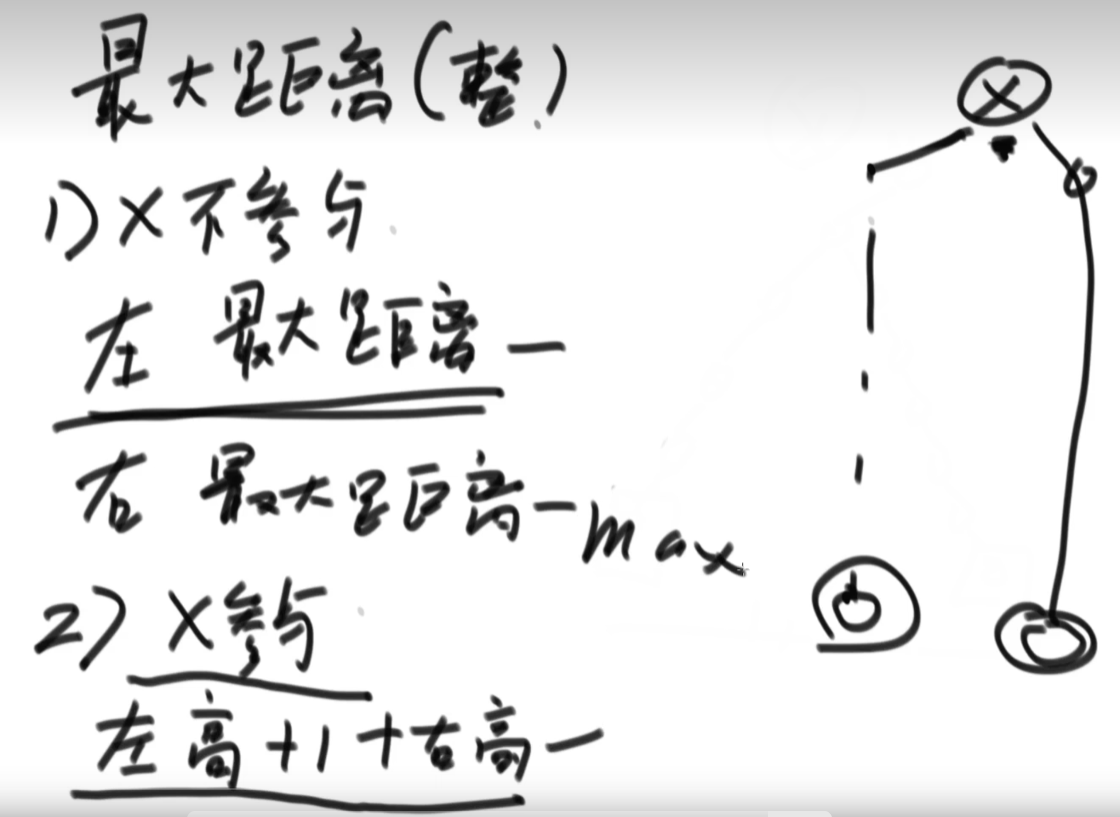 最大距离(整)
1) X不参与
左 最大距离 —
右 最大距离 — max
2) X参与
左高+1+右高 —
X